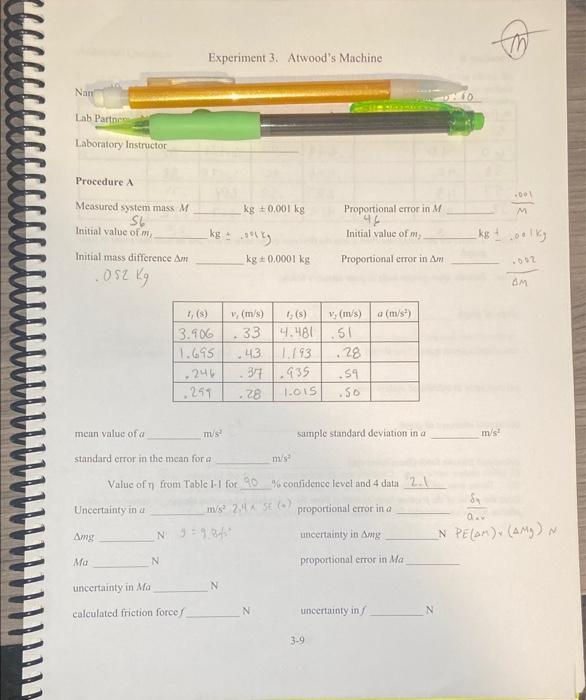 M
Experiment 3. Atwood's Machine
Nam
Lab Partner
Laboratory Instructor
Procedure A
Measured system mass M ____ kg ± 0.001 kg Proportional error in M ____ .001/M
56 46
Initial value of m₁ ____ kg ± .001 kg Initial value of m₂ ____ kg ± .001 kg
Initial mass difference Δm ____ kg ± 0.0001 kg Proportional error in Δm ____ .002/ΔM
.052 kg
t₁ (s) v₁ (m/s) t₂ (s) v₂ (m/s) a (m/s²)
3.906 .33 4.481 .51
1.695 .43 1.193 .28
.246 .37 .935 .59
.259 .28 1.015 .50
mean value of a ____ m/s² sample standard deviation in a ____ m/s²
standard error in the mean for a ____ m/s²
Value of η from Table I-1 for 90 % confidence level and 4 data 2.1
Uncertainty in a ____ m/s² 2.4 × SE (a) proportional error in a ____
Δmg ____ N g = 9.8 m/s² uncertainty in Δmg ____ N PE(ΔM) × (ΔMg) N
Ma ____ N proportional error in Ma ____
uncertainty in Ma ____ N
calculated friction force f ____ N uncertainty in f ____ N
3-9